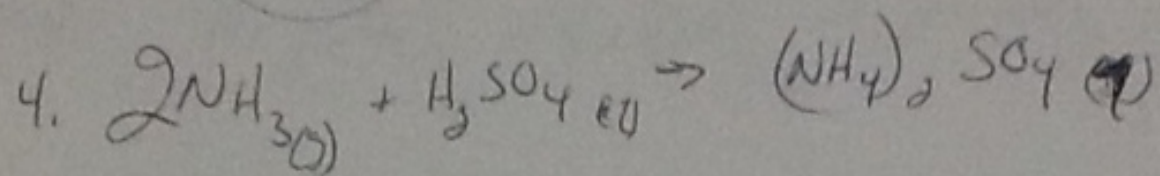 4. 2NH₃(g) + H₂SO₄ (l) → (NH₄)₂ SO₄